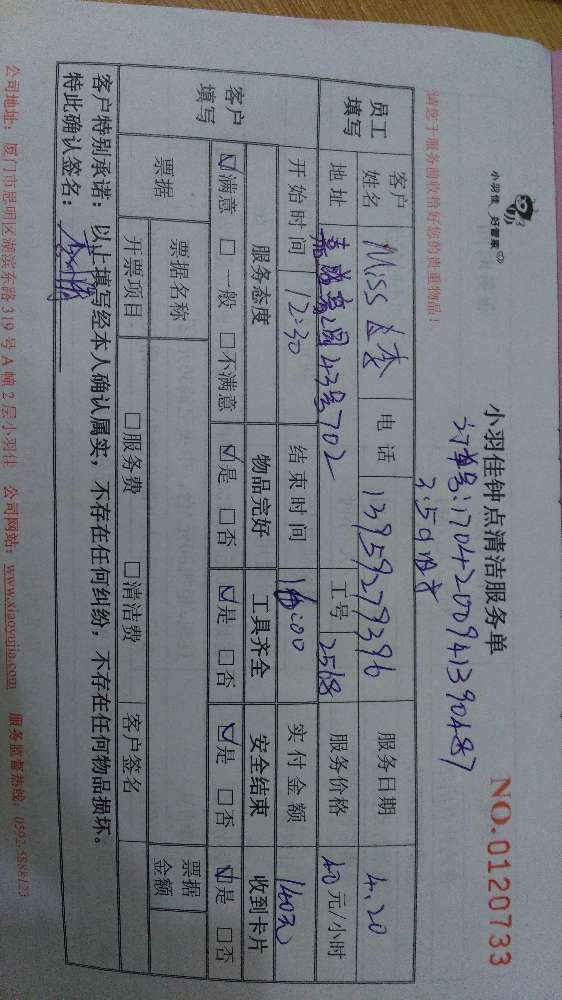 小羽佳 好管家
小羽佳钟点清洁服务单
NO.0120733
订单号:1704200941390487
3.5小时
请您于服务前收拾好您的贵重物品!
员工填写 客户姓名 Miss 电话 13959279396 服务日期 4.20
地址 43号702 工号 2518 服务价格 40元/小时
开始时间 12:30 结束时间 16:00 实付金额 140元
客户填写 服务态度 物品完好 工具齐全 安全结束 收到卡片
☑满意 □一般 □不满意 ☑是 □否 ☑是 □否 ☑是 □否 ☑是 □否
票据 票据名称 票据金额
开票项目 □服务费 □清洁费 客户签名
客户特别承诺:以上填写经本人确认属实,不存在任何纠纷,不存在任何物品损坏。
特此确认签名:
公司地址:厦门市思明区湖滨东路319号A幢2层小羽佳 公司网站:www.xiaoyujia.com 服务监督热线:0592-5888123